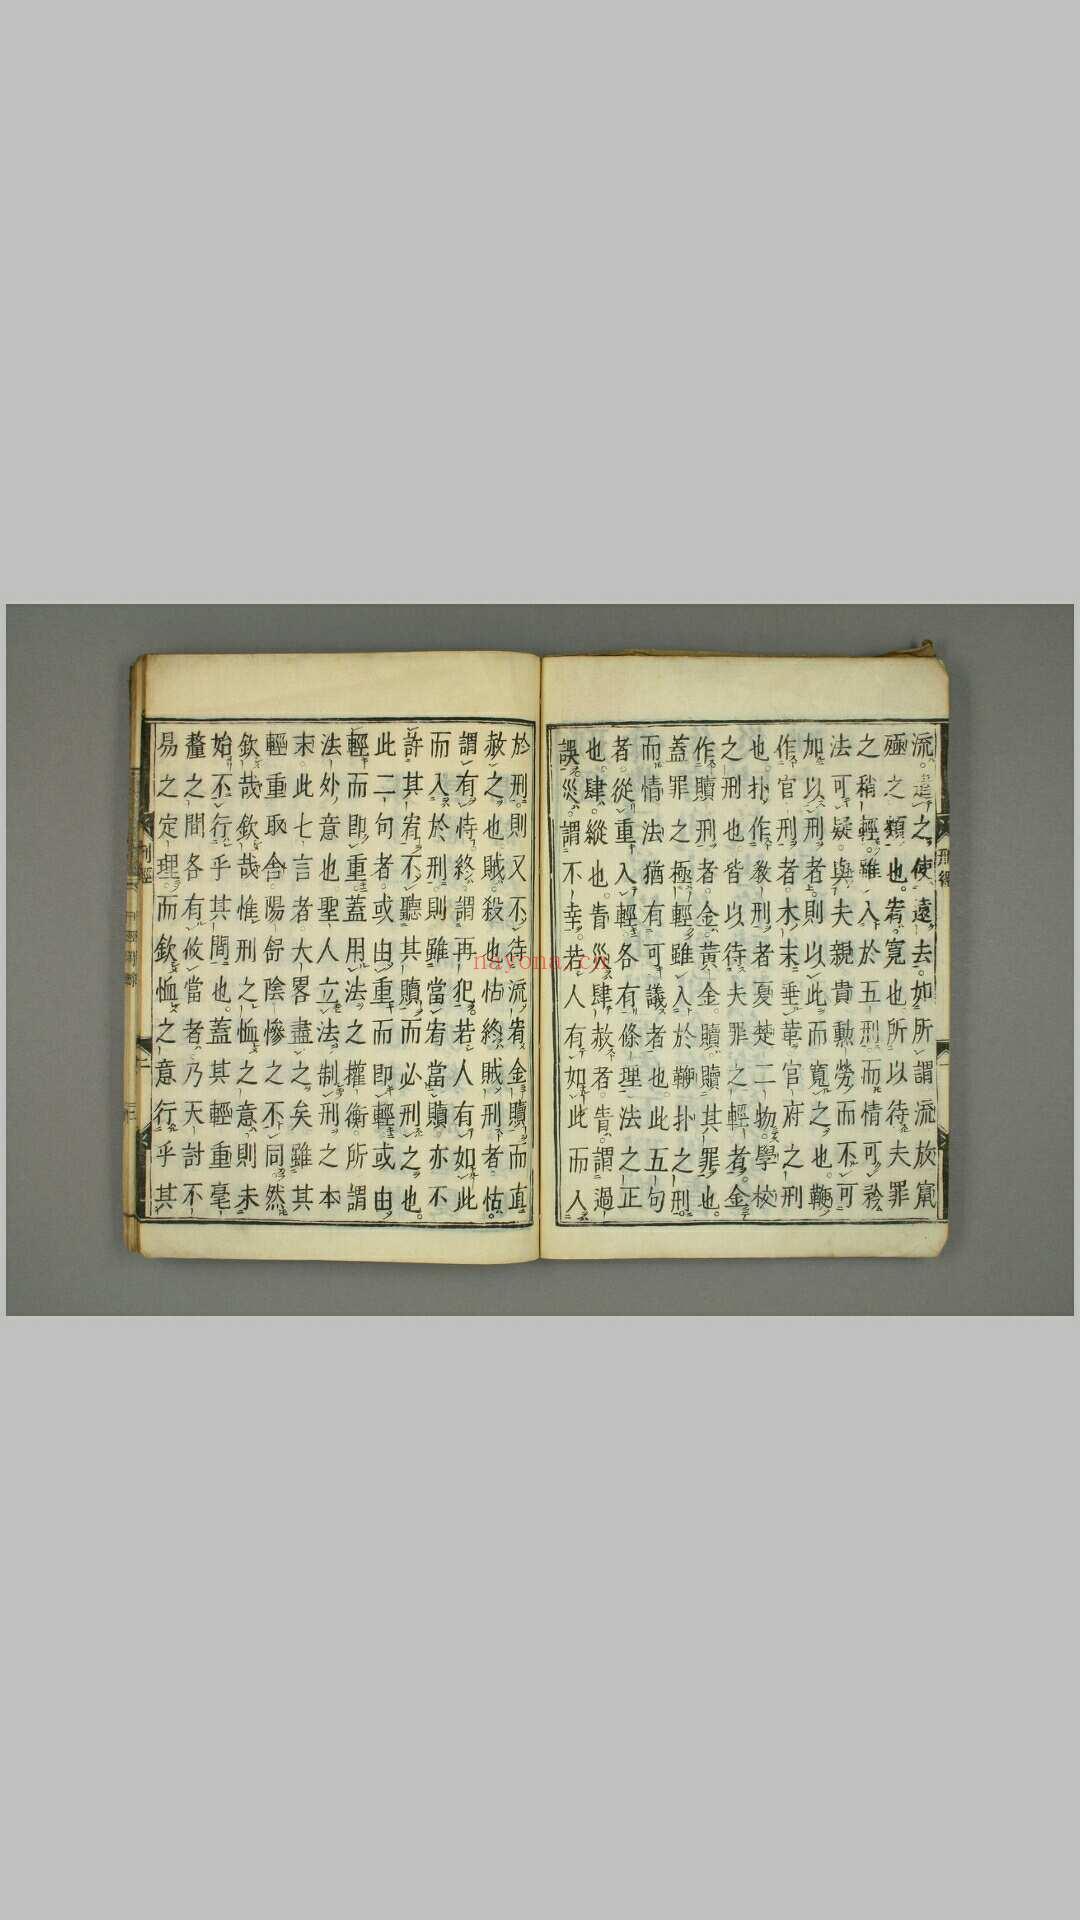 流遣之使遠去如所謂流放竄
殛之類也宥寬也所以待夫罪
之稍輕雖入於五刑而情可矜
法可疑與夫親貴勳勞而不可
加以刑者則以此而寬之也鞭
作官刑者木末垂革官府之刑
也扑作教刑者夏楚二物學校
之刑也皆以待夫罪之輕者金
作贖刑者金黃金贖贖其罪也
蓋罪之極輕雖入於鞭扑之刑
而情法猶有可議者也此五句
者從重入輕各有條理法之正
也肆縱也眚災肆赦者眚謂過
誤災謂不幸若人有如此而入
於刑則又不待流宥金贖而直
赦之也賊殺也怙終賊刑者怙
謂有恃終謂再犯若人有如此
而入於刑則雖當宥當贖亦不
許其宥不聽其贖而必刑之也
此二句者或由重而即輕或由
輕而即重蓋用法之權衡所謂
法外意也聖人立法制刑之本
末此七言者大畧盡之矣雖其
輕重取舍陽舒陰慘之不同然
欽哉欽哉惟刑之恤之意則未
始不行乎其間也蓋其輕重毫
釐之間各有攸當者乃天討不
易之定理而欽恤之意行乎其
刑經
nayona.cn